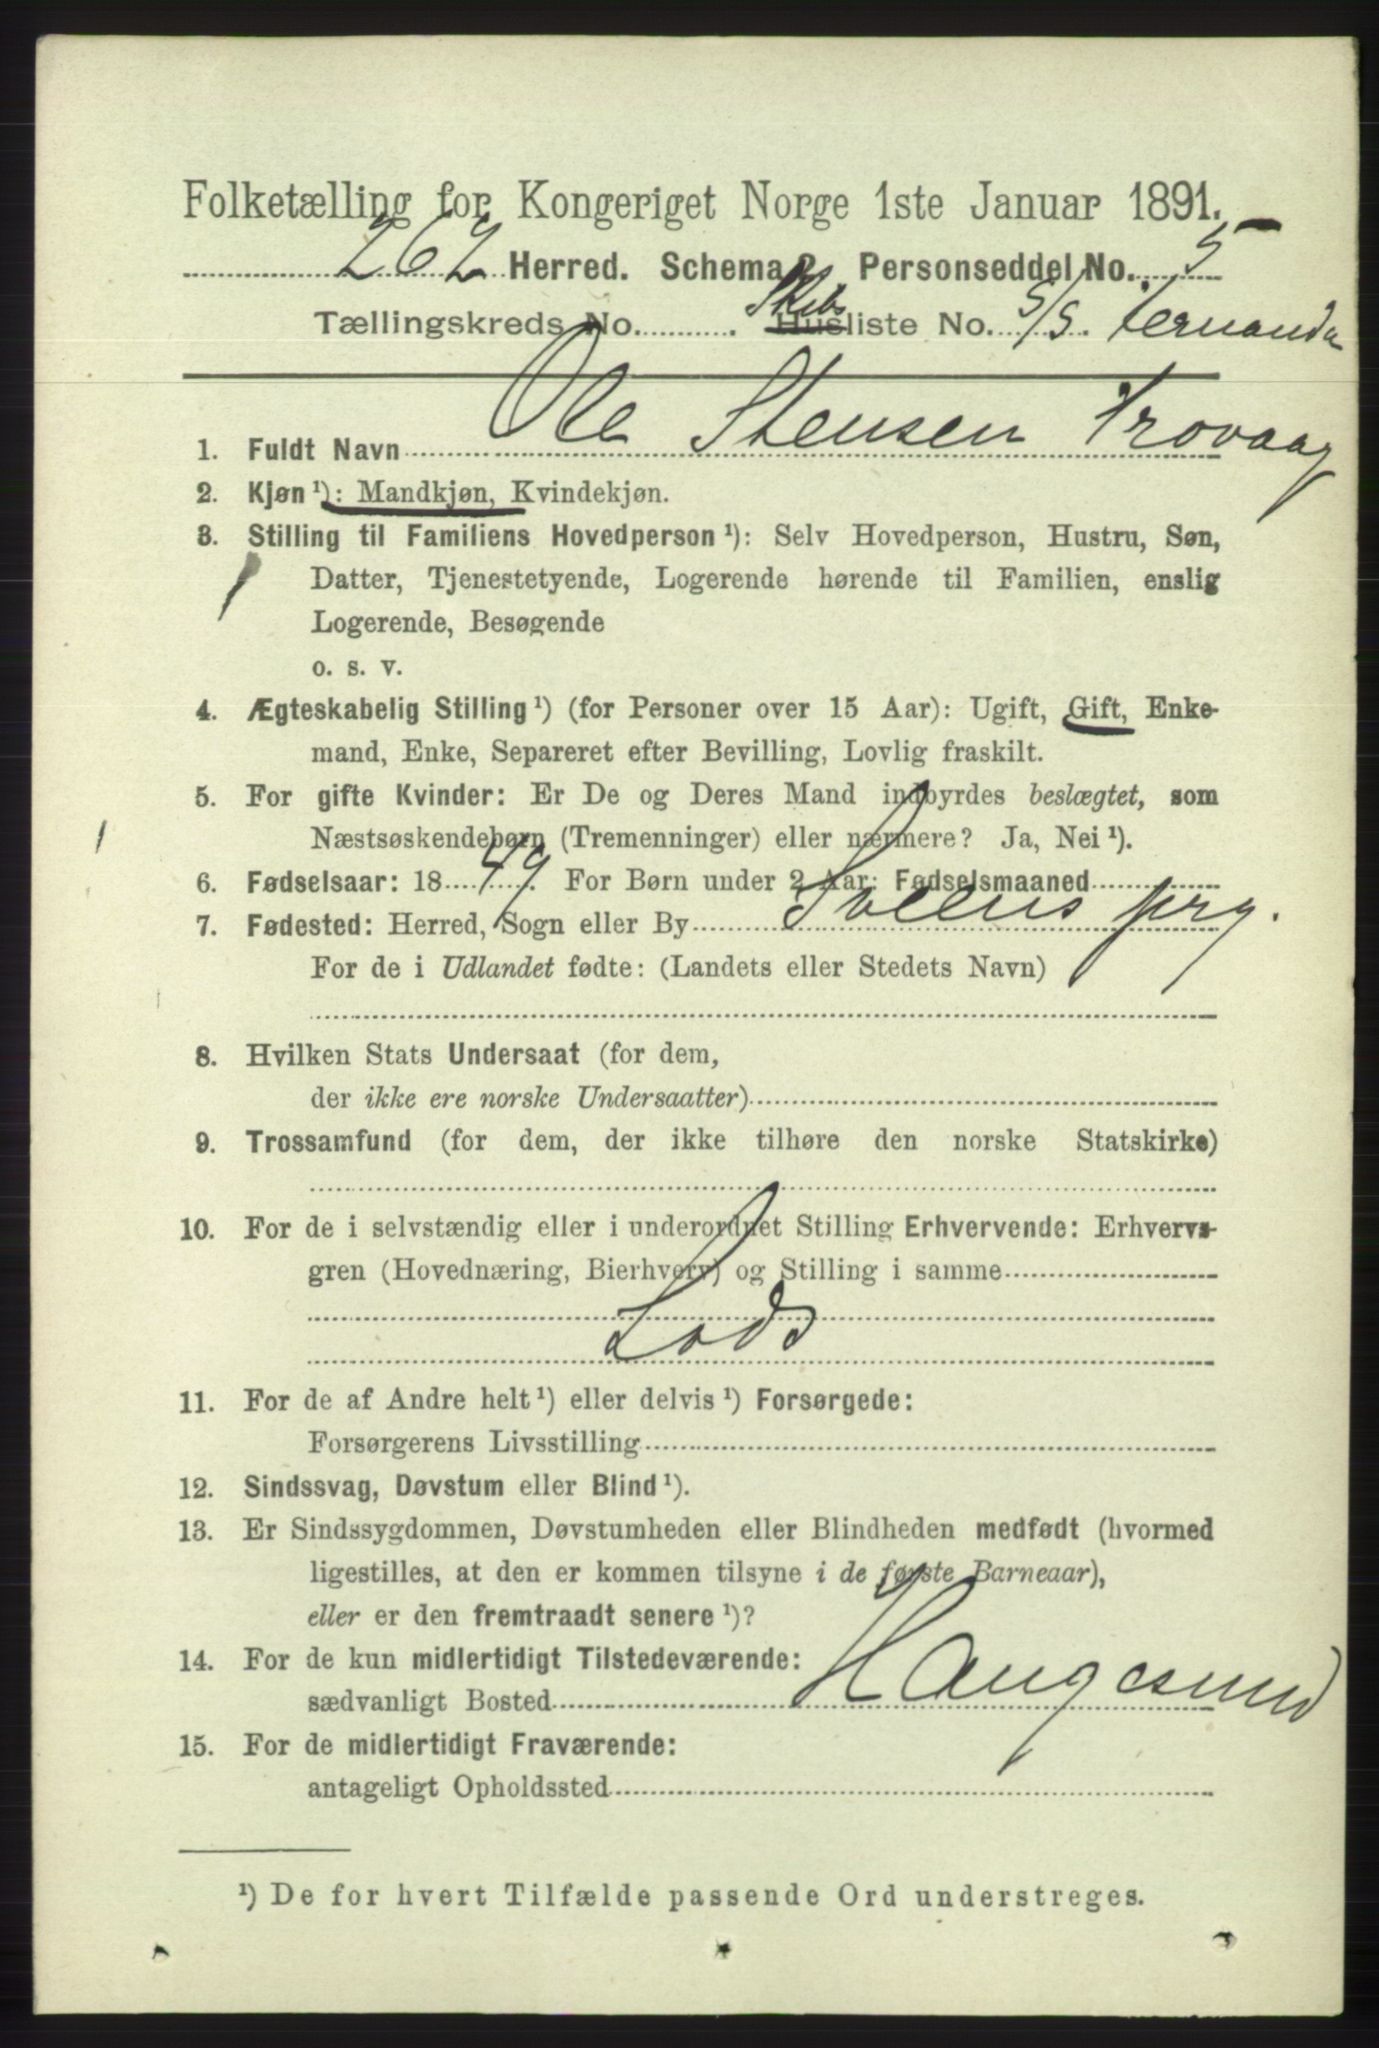 Folketælling for Kongeriget Norge 1ste Januar 1891.
262 Herred. Schema 2. Personseddel No. 5
Tællingskreds No. Skibs Husliste No. S/S.
1. Fuldt Navn Ole Stensen Trovaag
2. Kjøn ¹): Mandkjøn, Kvindekjøn.
3. Stilling til Familiens Hovedperson ¹): Selv Hovedperson, Hustru, Søn,
Datter, Tjenestetyende, Logerende hørende til Familien, enslig
Logerende, Besøgende
o. s. v.
4. Ægteskabelig Stilling ¹) (for Personer over 15 Aar): Ugift, Gift, Enke-
mand, Enke, Separeret efter Bevilling, Lovlig fraskilt.
5. For gifte Kvinder: Er De og Deres Mand indbyrdes beslægtet, som
Næstsøskendebørn (Tremenninger) eller nærmere? Ja, Nei ¹).
6. Fødselsaar: 1849. For Børn under 2 Aar: Fødselsmaaned
7. Fødested: Herred, Sogn eller By prg.
For de i Udlandet fødte: (Landets eller Stedets Navn)
8. Hvilken Stats Undersaat (for dem,
der ikke ere norske Undersaatter)
9. Trossamfund (for dem, der ikke tilhøre den norske Statskirke)
10. For de i selvstændig eller i underordnet Stilling Erhvervende: Erhvervs-
gren (Hovednæring, Bierhverv) og Stilling i samme
Lods
11. For de af Andre helt ¹) eller delvis ¹) Forsørgede:
Forsørgerens Livsstilling
12. Sindssvag, Døvstum eller Blind ¹).
13. Er Sindssygdommen, Døvstumheden eller Blindheden medfødt (hvormed
ligestilles, at den er kommen tilsyne i de første Barneaar),
eller er den fremtraadt senere ¹)?
14. For de kun midlertidigt Tilstedeværende:
sædvanligt Bosted Haugesund
15. For de midlertidigt Fraværende:
antageligt Opholdssted
¹) De for hvert Tilfælde passende Ord understreges.